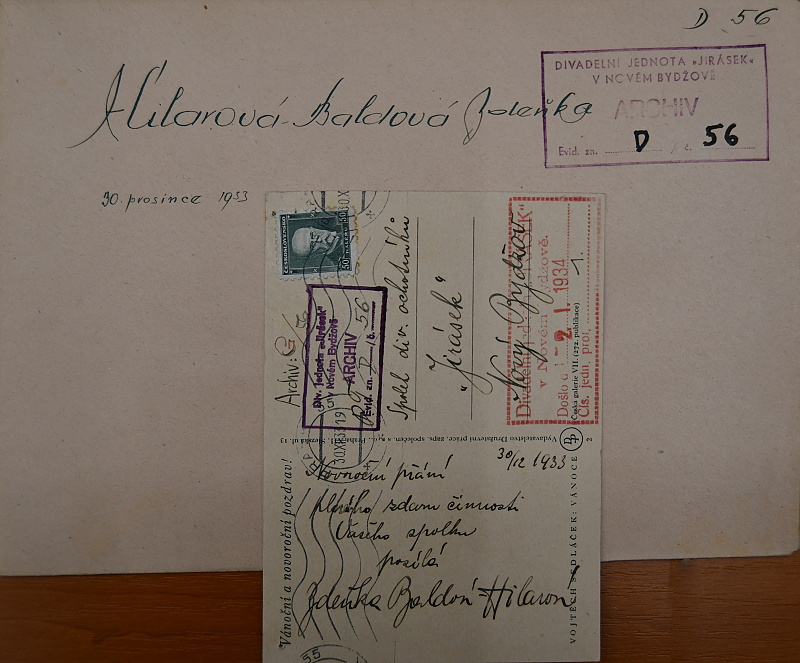 D 56
DIVADELNÍ JEDNOTA „JIRÁSEK“
V NOVÉM BYDŽOVĚ
ARCHIV
Evid. zn. D / č. 56
Hilarová-Baldová Zdeňka
30. prosince 1933
ČESKOSLOVENSKO
50
Spolek div. ochotníků
„Jirásek“
Nový Bydžov
Archiv: G
Div. jednota „Jirásek“
v Novém Bydžově
ARCHIV
Evid. zn. D č. 56
v Novém Bydžově.
Došlo d. - 2. 1. 1934
Čís. jedn. prot. 1.
Česká galerie VII. (272. publikace)
Vydavatelstvo Družstevní práce, zaps. společen. s r. o., Praha II.
30/12 1933
Vánoční a novoroční pozdrav!
Novoroční přání
plného zdaru činnosti
Vašeho spolku
posílá
Zdeňka Baldová Hilarová
VOJTĚCH SEDLÁČEK: VÁNOCE